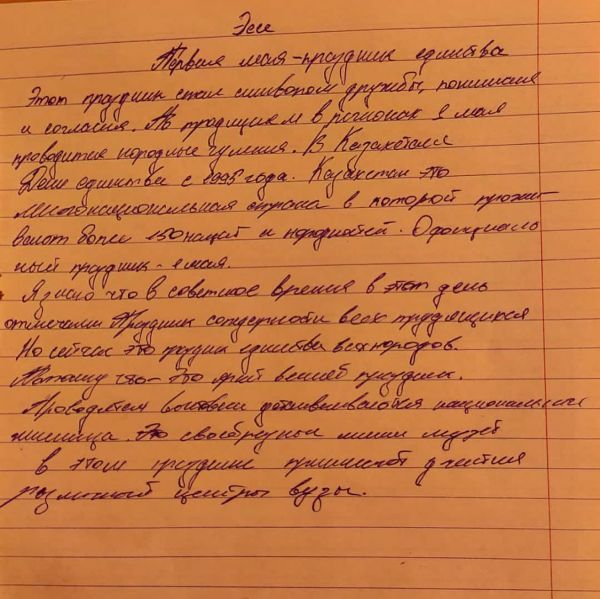 Эссе
Первая мая - праздник единства
Этот праздник стал символом дружбы, понимания
и согласия. По традициям в регионах 1 мая
проводится народные гуляния. В Казахстане
День единства с 1995 года. Казахстан это
Многонациональная страна в которой прожи
вают более 150 наций и народностей. Официаль
ный праздник - 1 мая.
Я знаю что в советское время в этот день
отмечали Праздник солидерности всех трудящихся
Но сейчас это праздник единства всех народов.
Потому что - это яркий праздник.
Проводятся выставки национальные
жилища. Это своебразный мини музей
в этом празднике принимают участия
различный центры вузы.